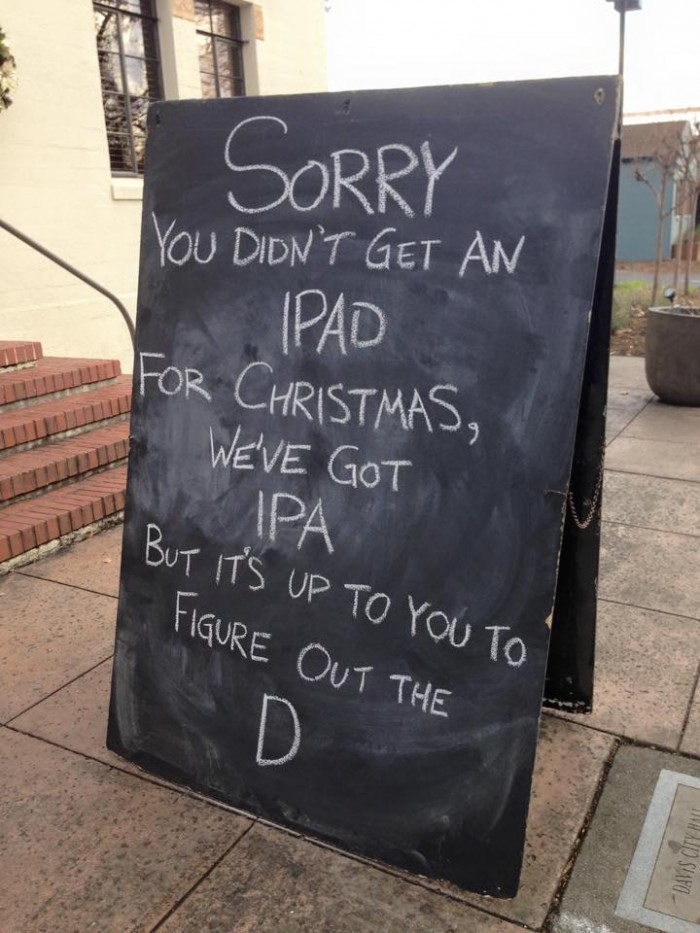 SORRY
YOU DIDN'T GET AN
IPAD
FOR CHRISTMAS,
WE'VE GOT
IPA
BUT IT'S UP TO YOU TO
FIGURE OUT THE
D
DAVIS